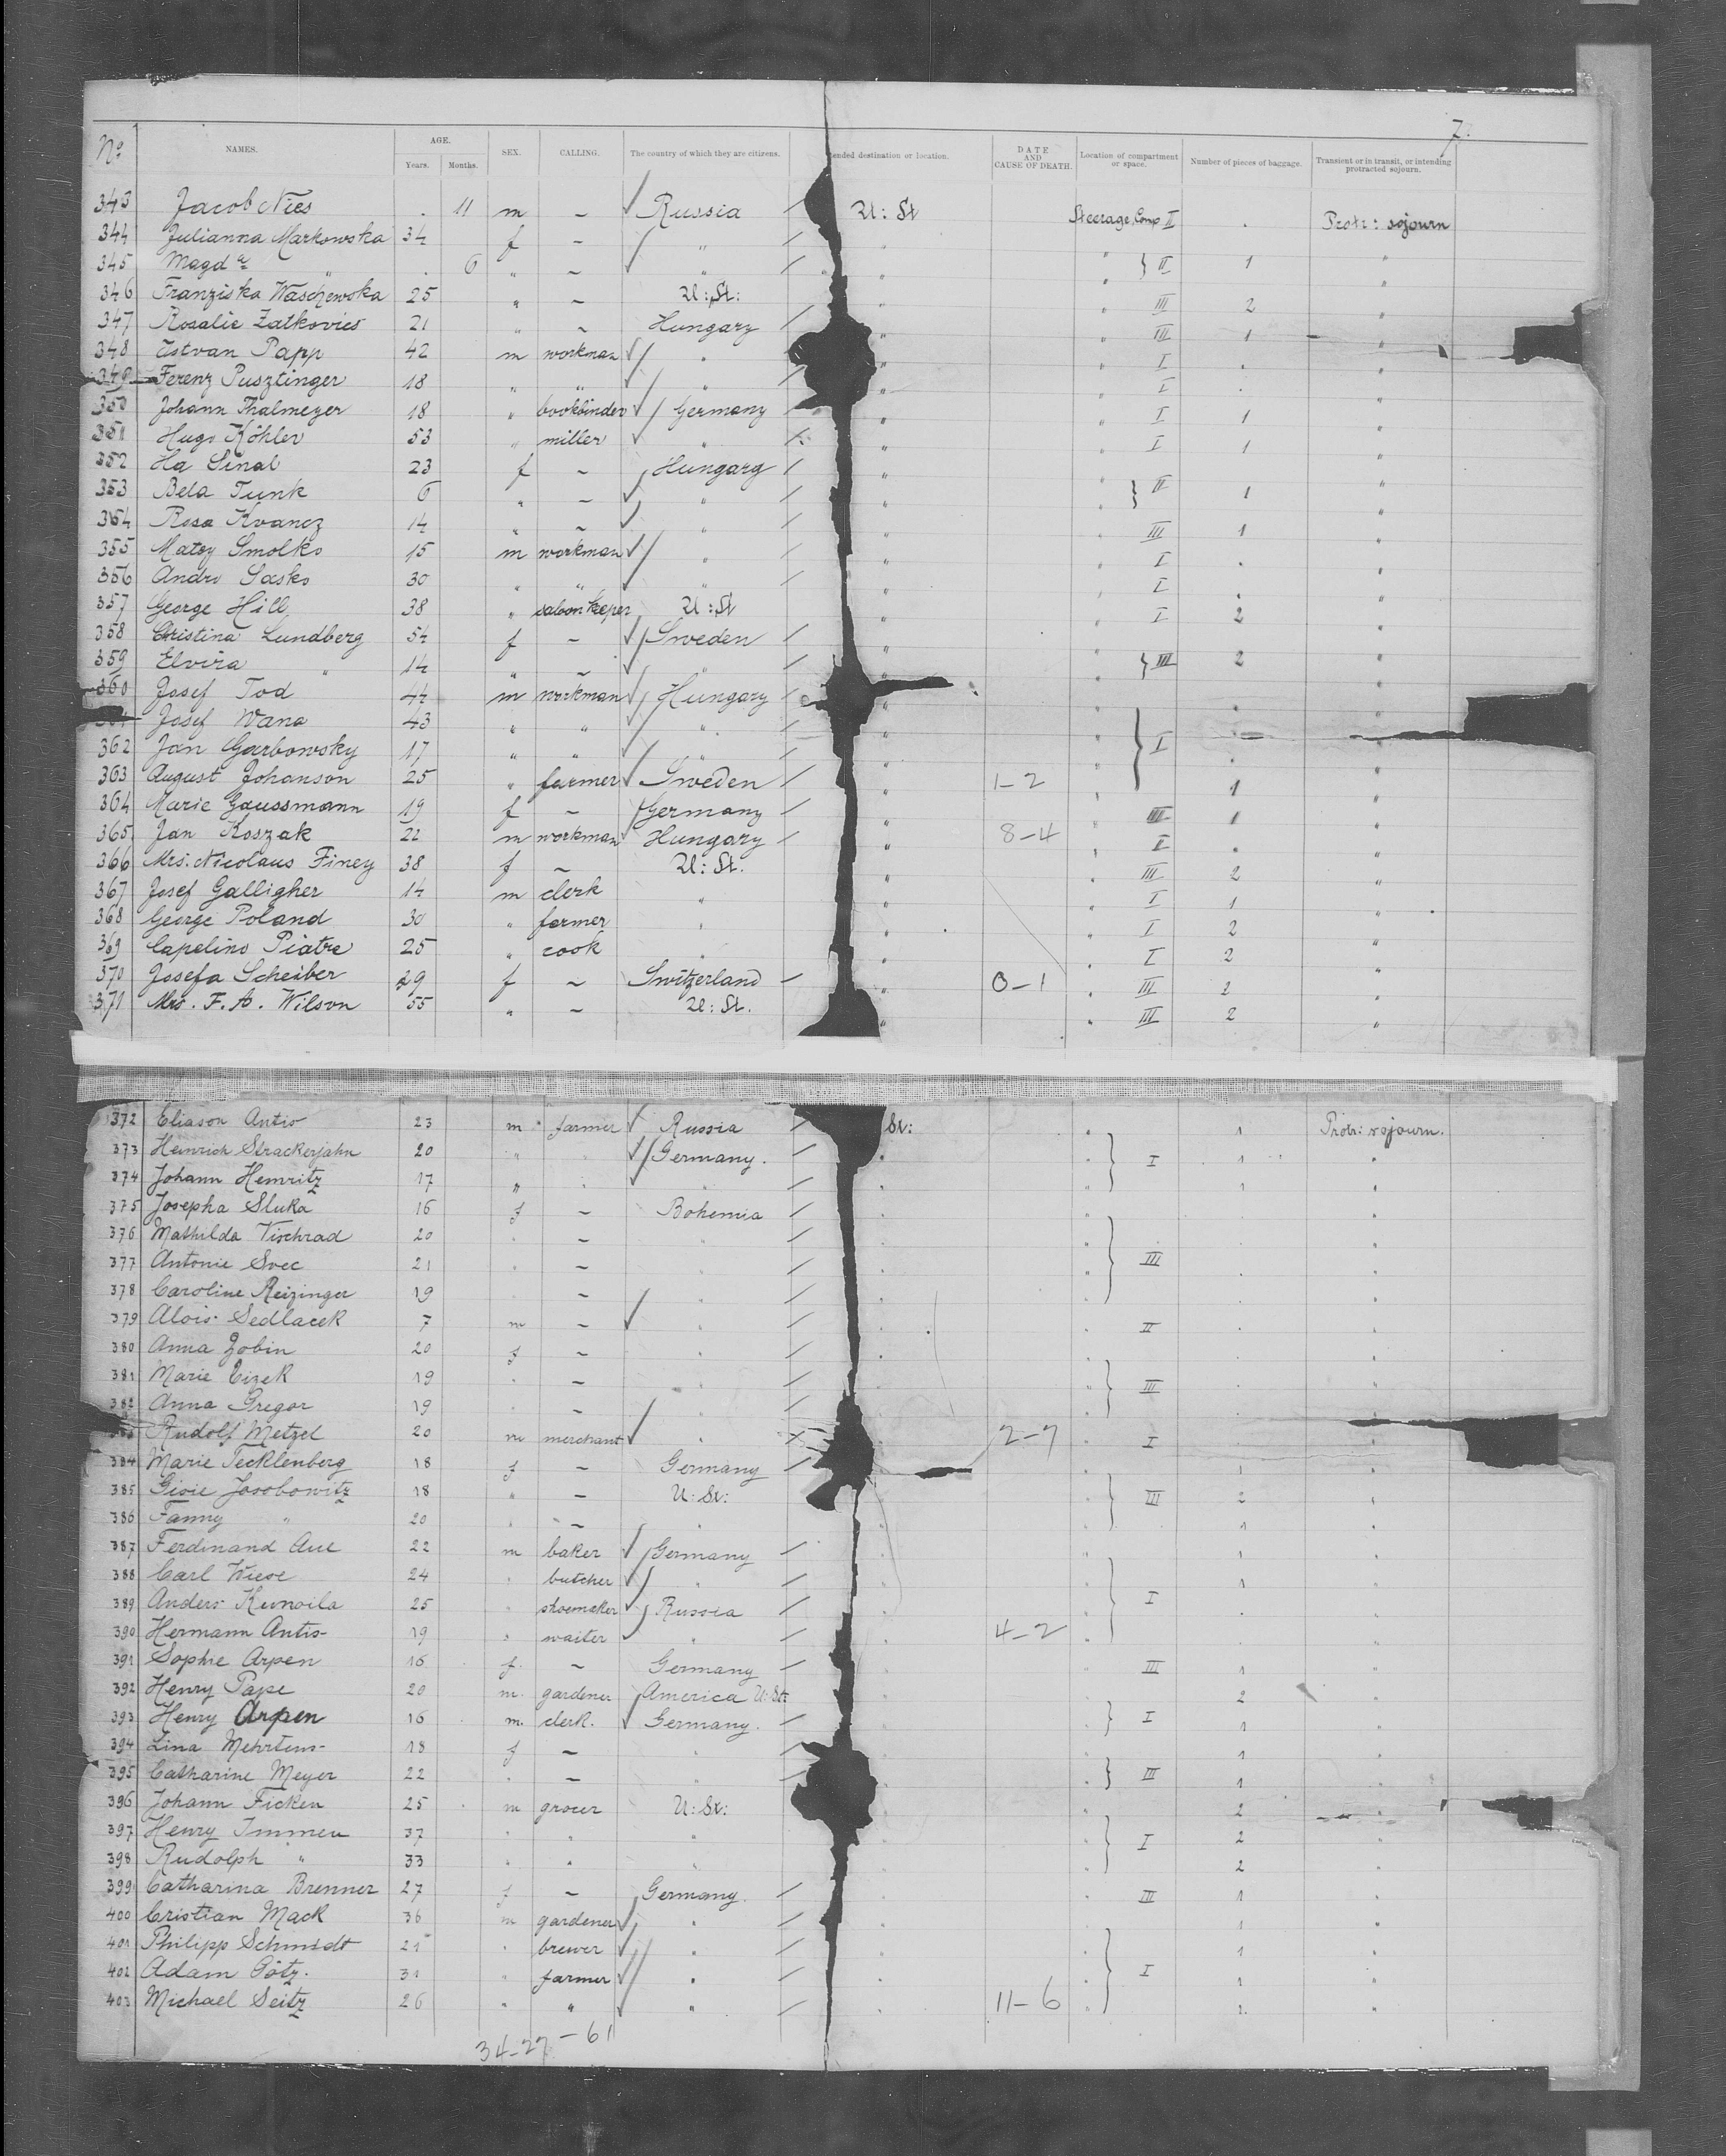 7.
No NAMES. AGE. Years. Months. SEX. CALLING. The country of which they are citizens. ended destination or location. DATE AND CAUSE OF DEATH. Location of compartment or space. Number of pieces of baggage. Transient or in transit, or intending protracted sojourn.
343 Jacob Nies . 11 m – Russia U: St Steerage Comp II . Protr: sojourn
344 Julianna Markowska 34 f – " " " "
345 Magda " . 6 " – " " " } II 1 "
346 Franziska Waschewska 25 " – U: St: " " III 2 "
347 Rosalie Zatkovics 21 " – Hungary " " III 1 "
348 Istvan Papp 42 m workman " " " I . "
349 Ferenz Pusztinger 18 " " " " " I . "
350 Johann Thalmeyer 18 " bookbinder Germany " " I 1 "
351 Hugo Köhler 53 " miller " " " I 1 "
352 Ha Sinal 23 f – Hungary " "
353 Bela Tunk 6 " – " " " } II 1 "
354 Rosa Kvancz 14 " – " " " III 1 "
355 Matey Smolko 15 m workman " " " I . "
356 Andro Sasko 30 " " " " " I . "
357 George Hill 38 " saloonkeeper U: St " " I 2 "
358 Christina Lundberg 54 f – Sweden " "
359 Elvira " 14 " – " " " } III 2 "
360 Josef Tod 44 m workman Hungary " " . "
Josef Wana 43 " " " " " . "
362 Jan Garbowsky 17 " " " " " } I . "
363 August Johanson 25 " farmer Sweden " 1-2 " 1 "
364 Marie Gaussmann 19 f – Germany " " III 1 "
365 Jan Koszak 22 m workman Hungary " 8-4 " I . "
366 Mrs. Nicolaus Finey 38 f – U: St. " " III 2 "
367 Josef Galligher 14 m clerk " " " I 1 "
368 George Poland 30 " farmer " " " I 2 "
369 Capelino Piatre 25 " cook " " " I 2 "
370 Josefa Scheiber 29 f – Switzerland " 0-1 " III 2 "
371 Mrs. F. A. Wilson 55 " – U: St. " " III 2 "
372 Eliason Antis 23 m farmer Russia St: " 1 Protr: sojourn.
373 Heinrich Strackerjahn 20 " " Germany. " " } I 1 "
374 Johann Hemritz 17 " " " " " 1 "
375 Josepha Sluka 16 f – Bohemia " " . "
376 Mathilda Vischrad 20 " – " " " . "
377 Antonie Svec 21 " – " " " } III . "
378 Caroline Reizinger 19 " – " " " . "
379 Alois Sedlacek 7 m – " " " II . "
380 Anna Zobin 20 f – " " " . "
381 Marie Cizek 19 " – " " " } III . "
382 Anna Gregor 19 " – " " " . "
Rudolf Metzel 20 m merchant " " 2-7 " I . "
384 Marie Tecklenberg 18 f – Germany " " 1 "
385 Gisie Josobowitz 18 " – U: St: " " } III 2 "
386 Fanny " 20 " – " " " 1 "
387 Ferdinand Aue 22 m baker Germany " " 1 "
388 Carl Wiese 24 " butcher " " " 1 "
389 Anders Kunoila 25 " shoemaker Russia " " } I . "
390 Hermann Antis 19 " waiter " " 4-2 " . "
391 Sophie Arpen 16 f. – Germany " " III 1 "
392 Henry Pape 20 m. gardener America U: St: " " 2 "
393 Henry Arpen 16 m. clerk. Germany. " " } I 1 "
394 Lina Mehrtens 18 f – " " " 1 "
395 Catharine Meyer 22 " – " " " } III 1 "
396 Johann Ficken 25 m grocer U: St: " " 2 "
397 Henry Immen 37 " " " " " } I 2 "
398 Rudolph " 33 " " " " " 2 "
399 Catharina Brenner 27 f – Germany. " " III 1 "
400 Cristian Mack 36 m gardener " " " 1 "
401 Philipp Schmidt 21 " brewer " " " 1 "
402 Adam Götz. 31 " farmer " " " } I 1 "
403 Michael Seitz 26 " " " " 11-6 " 2. "
34-27-61